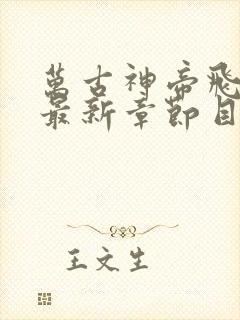 萬古神帝飛
最新章節目
王文生